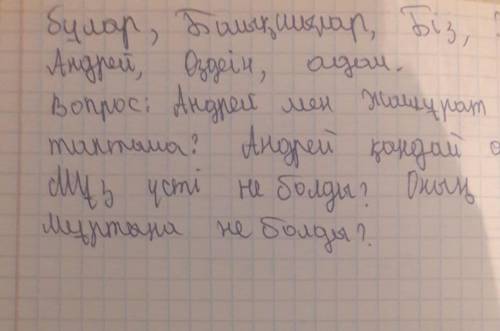 бұлар, Балықшылар, Біз,
Андрей, Өздеін, адам.
Вопрос: Андрей мен Жашұрат
тақтыма? Андрей қандай
Мұз үсті не болды? Оның
Мұртына не болды?